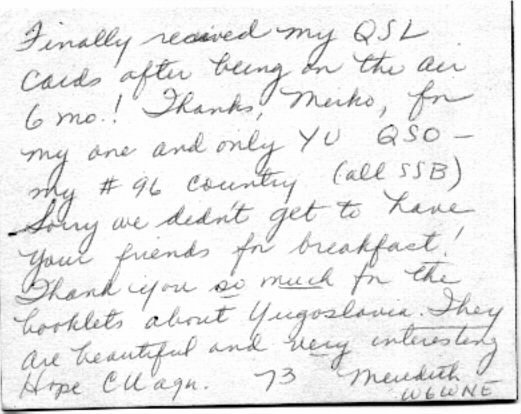 Finally received my QSL
cards after being on the air
6 mo.! Thanks, Meiko, for
my one and only YU QSO –
my # 96 country (all SSB)
Sorry we didn't get to have
your friends for breakfast!
Thank you so much for the
booklets about Yugoslavia. They
are beautiful and very interesting
Hope CU agn. 73 Meredith
W6WNE